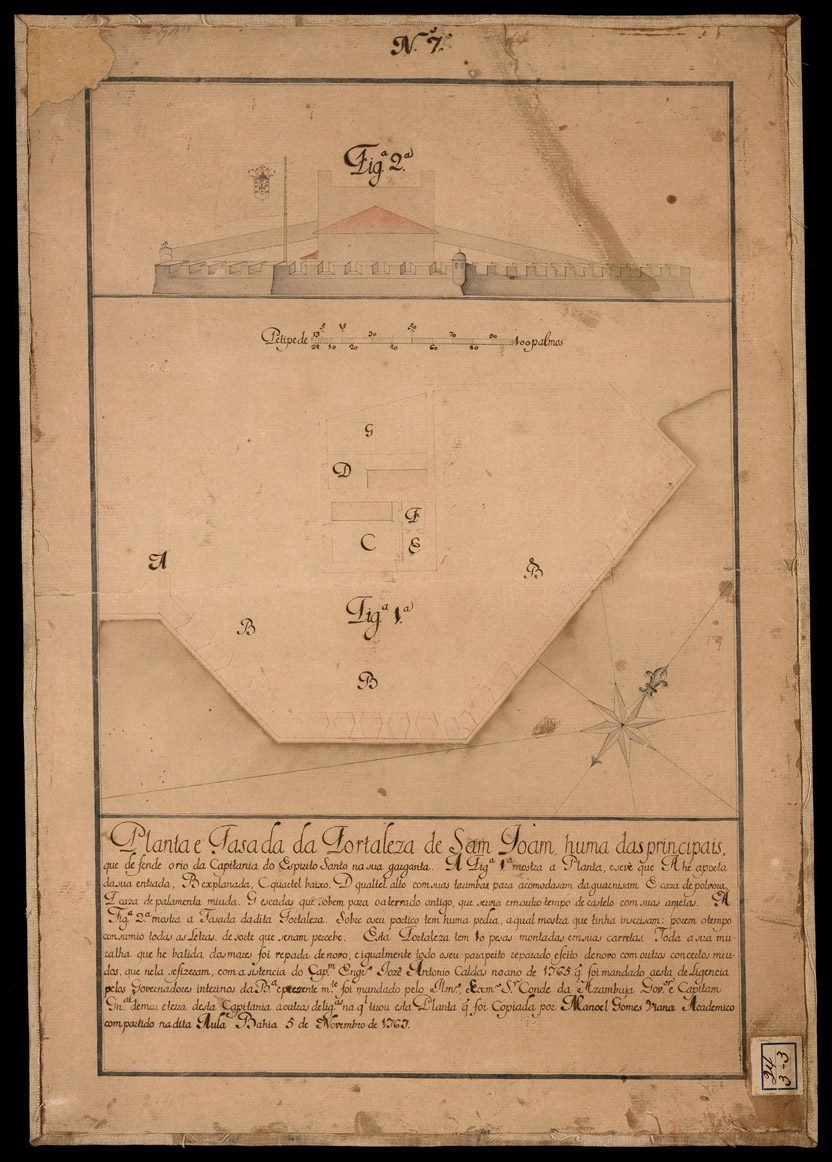 N. 7.
Fig.ª 2.ª
Petipe de 100 palmos
G
D
F
C E
A
B
Fig.ª 1.ª
B
B
Planta e Fasada da Fortaleza de Sam Joam, huma das principais,
que defende o rio da Capitania do Espirito Santo na sua garganta. A Fig.ª 1.ª mostra a Planta, e se vê que A he a porta
da sua entrada, B explanada, C quartel baixo. D quartel alto com suas tarimbas para acomodasam da guarnisam E caza de polvora,
F caza de palamenta miuda. G escadas que sobem para o alerrado antigo, que servia em outro tempo de castelo com suas amejas. A
Fig.ª 2.ª mostra a Fasada da dita Fortaleza. Sobre o seu portico tem huma pedra, a qual mostra que tinha inscrisam: porem o tempo
consumio todas as Letras. de sorte que se nam percebe. Esta Fortaleza tem 10 pesas montadas em suas carretas. Toda a sua mu-
ralha que he batida das mares foi repada de novo, e igualmente todo o seu parapeito reparado, e feito de novo com outros concertos miu-
dos, que nela se fizeram, com a sistencia do Cap.m Eng.ro Jozê Antonio Caldas no ano de 1765 q̃ foi mandado a esta deligencia
pelos Governadores interinos da B.ª e prezente m.te foi mandado pelo Ilm.o e Exm.o S.r Conde da Azambuja Gov.or e Capitam
Gn.al de mar, e terra desta Capitania a outras delig.as na q.l tirou esta Planta q̃ foi Copiada por Manoel Gomes Viana Academico
com partido na dita Aula Bahia 5 de Novembro de 1767.
24
3-3